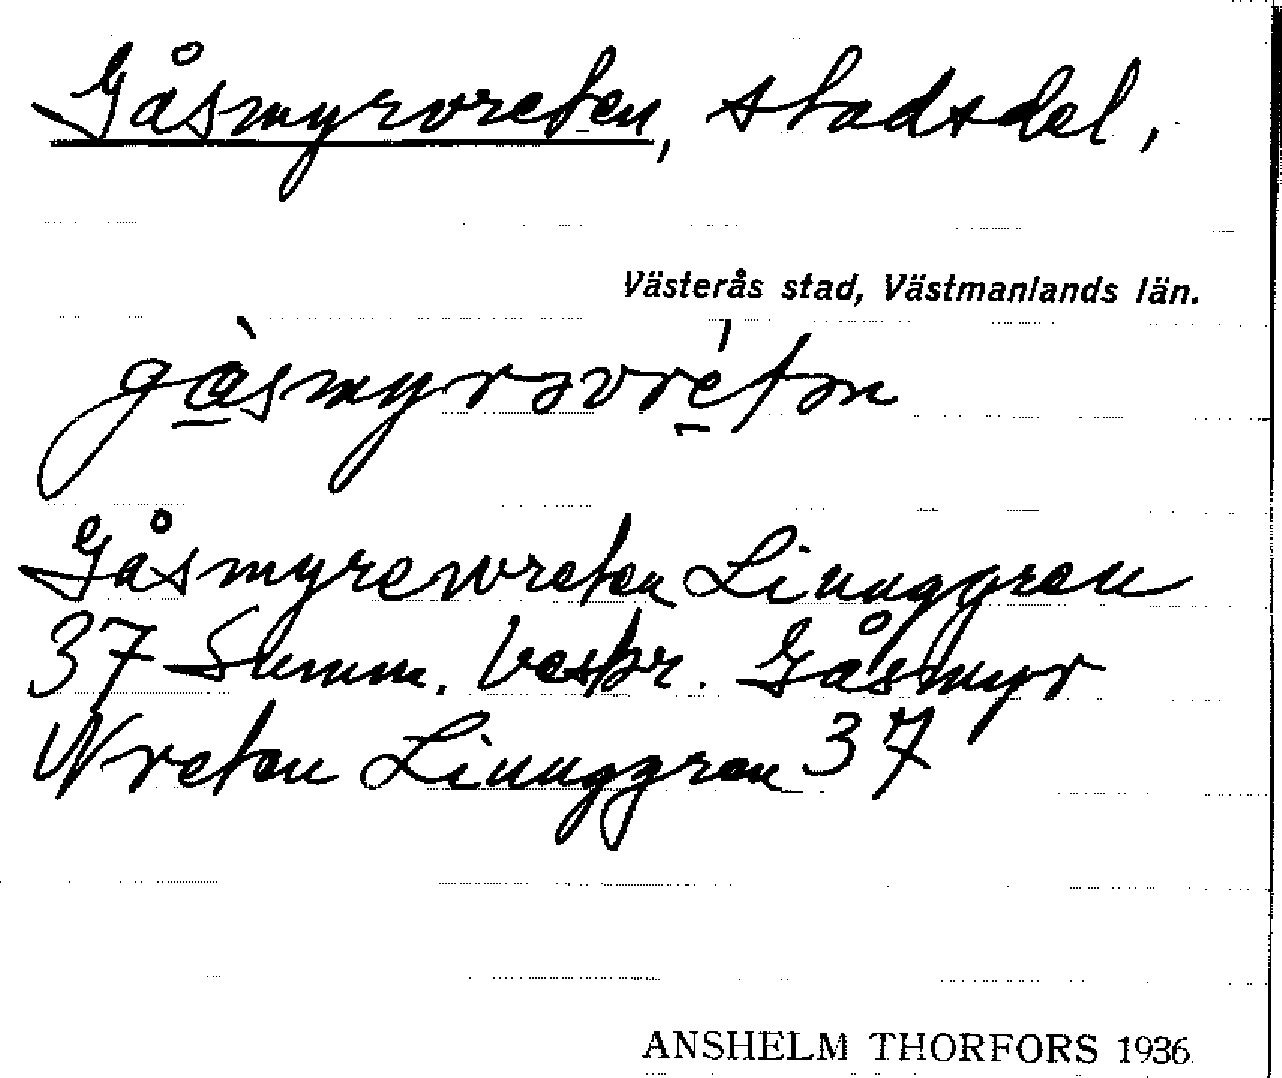 Gåsmyrvreten, stadsdel,
Västerås stad, Västmanlands län.
gå̀smyrəvré̱tən
Gåsmyrewreten Linnggren
37 Summ. Vespr. Gåsmyr
Wreten Linnggren 37
ANSHELM THORFORS 1936